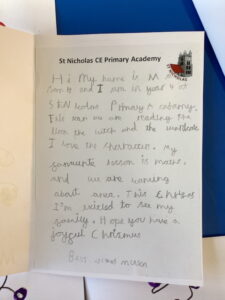 St Nicholas CE Primary Academy
ST NICHOLAS
Hi My name is M
and I am in year 4 at
St Nicholas Primary Academy,
we are reading The
lion the witch and the
I love the character. My
favourite lesson is maths,
and we are learning
about area. This
I'm excited to see my
family. Hope you have a
joyful
Best wishes